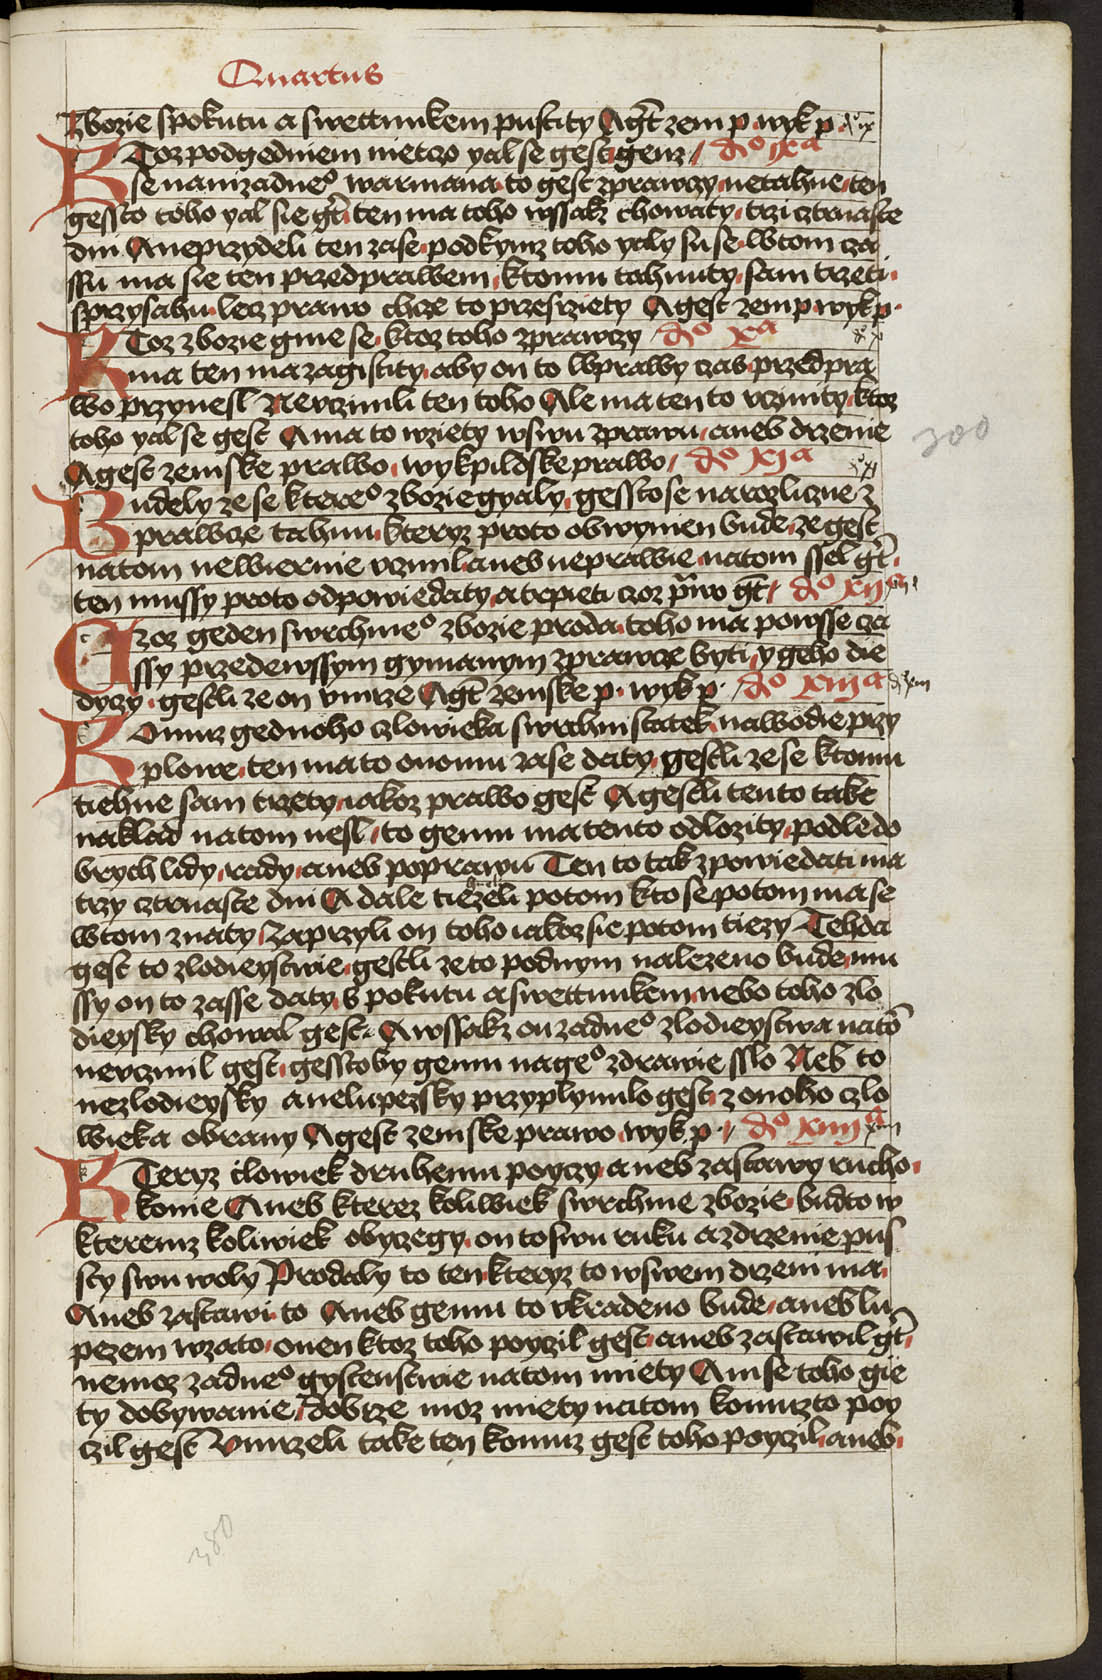 Quartus
Zbozie spokutu a swettunkem pustity Agt zem p wyk p
KToz podgedniem nietczo yal se gest genz do ixa
se nanizadneo warmana to gest zprawczy netahne ten
gessto toho yal sie gt ten ma toho wssak chowaty trzi cztrnaste
dni A neprzydeli ten zase podkymz toho yaly su se wtom cza
ssu ma sie ten przed prawem ktomu tahnuty sam trzeti
sprzysahu lecz prawo chcze to przesrziety A gest zem p wyk p
KToz zbozie gme se ktoz toho zprawczy do xa
ma ten ma zagistity aby on to wprawy czas przed pra
wo przynesl Nevczinili ten toho Ale ma ten to vcziniti ktoz
toho yal se gest A ma to wziety wswu zprawu aneb drzenie
A gest zemske prawo wykpildske prawo do xia
Budely ze se ktereo zbozie gyaly gessto se narozliczne z
prawcze tahnu kteryz proto obwynien bude ze gest
natom newiernie vczinil aneb neprawie natom ssel gt
ten mussy proto odpowiedaty a trpieti czoz prawo gt do xiia
Czoz geden swrchnieo zbozie proda toho ma powsse cza
ssy przedewssym gymanym zprawcze byti y geho die
dyczy gestli ze on vmrze Agt zemske p wyk p do xiiia
Komuz gednoho czlowieka swrchni statek nawodie przy
plowe ten ma to onomu zase daty gestli ze se ktomu
tiehne sam trzety iakoz prawo gest A gestli tento take
naklad natom nesl to genu ma tento odlozity podle do
brych lidy rady aneb poprawu Ten to tak zpowiedati ma
trzy cztrnaste dni A dale tiezeli potom kto se potom ma se
wtom znaty Zaprzyli on toho iakoz sie potom tiezy Tehda
gest to zlodieystwie gestli ze to podnym nalezeno bude mu
ssy on to zasse daty s pokutu a swettunkem nebo toho zlo
dieysky chowal gest A wssak on zadneo zlodieystwa nato
nevczinil gest gesstoby genu nageo zdrawie sslo Neb to
nezlodieysky anelupezsky przyplynulo gest z onoho czlo
wieka obrany A gest zemske prawo wyk p do xiiiia
KTeryz clowiek druhemu poyczy aneb zastawy rucho
konie Aneb kterez koliwiek swrchnie zbozie budto w
kteremz koliwiek obyczegy on to swu ruku a zdrzenie pus
sty swu woly Prodaly to ten kteryz to wswem drzeni ma
Aneb zastawi to Aneb genu to vkradeno bude aneb lu
pezem wzato onen ktoz toho poyczil gest aneb zastawil gt
nemoz zadneo gystenstwie natom miety A mi se toho gie
ty dobywanie dobrze moz miety natom komuzto poy
czil gest Vmrzeli take ten komuz gest toho poyczil aneb
300
380